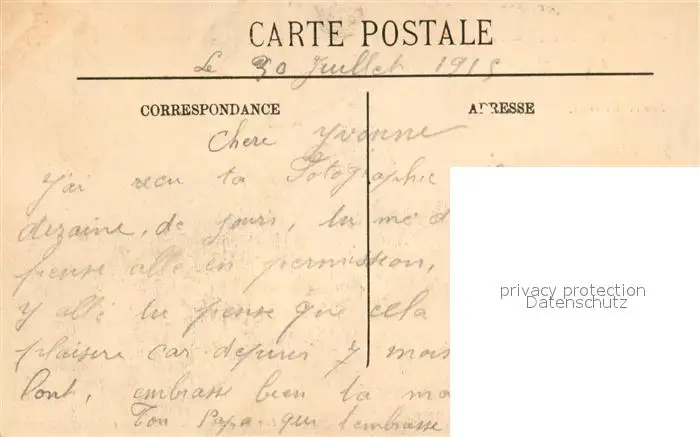 CARTE POSTALE
Le 30 Juillet 1915
CORRESPONDANCE
ADRESSE
Chere Yvonne
J'ai recu ta Fotographie
dizaine, de jours, tu me d
pense allé en permission,
y allé tu pense que cela
plaisera car depuis 7 mois
lont, embrasse bien ta ma
Ton Papa qui t'embrasse
privacy protection
Datenschutz